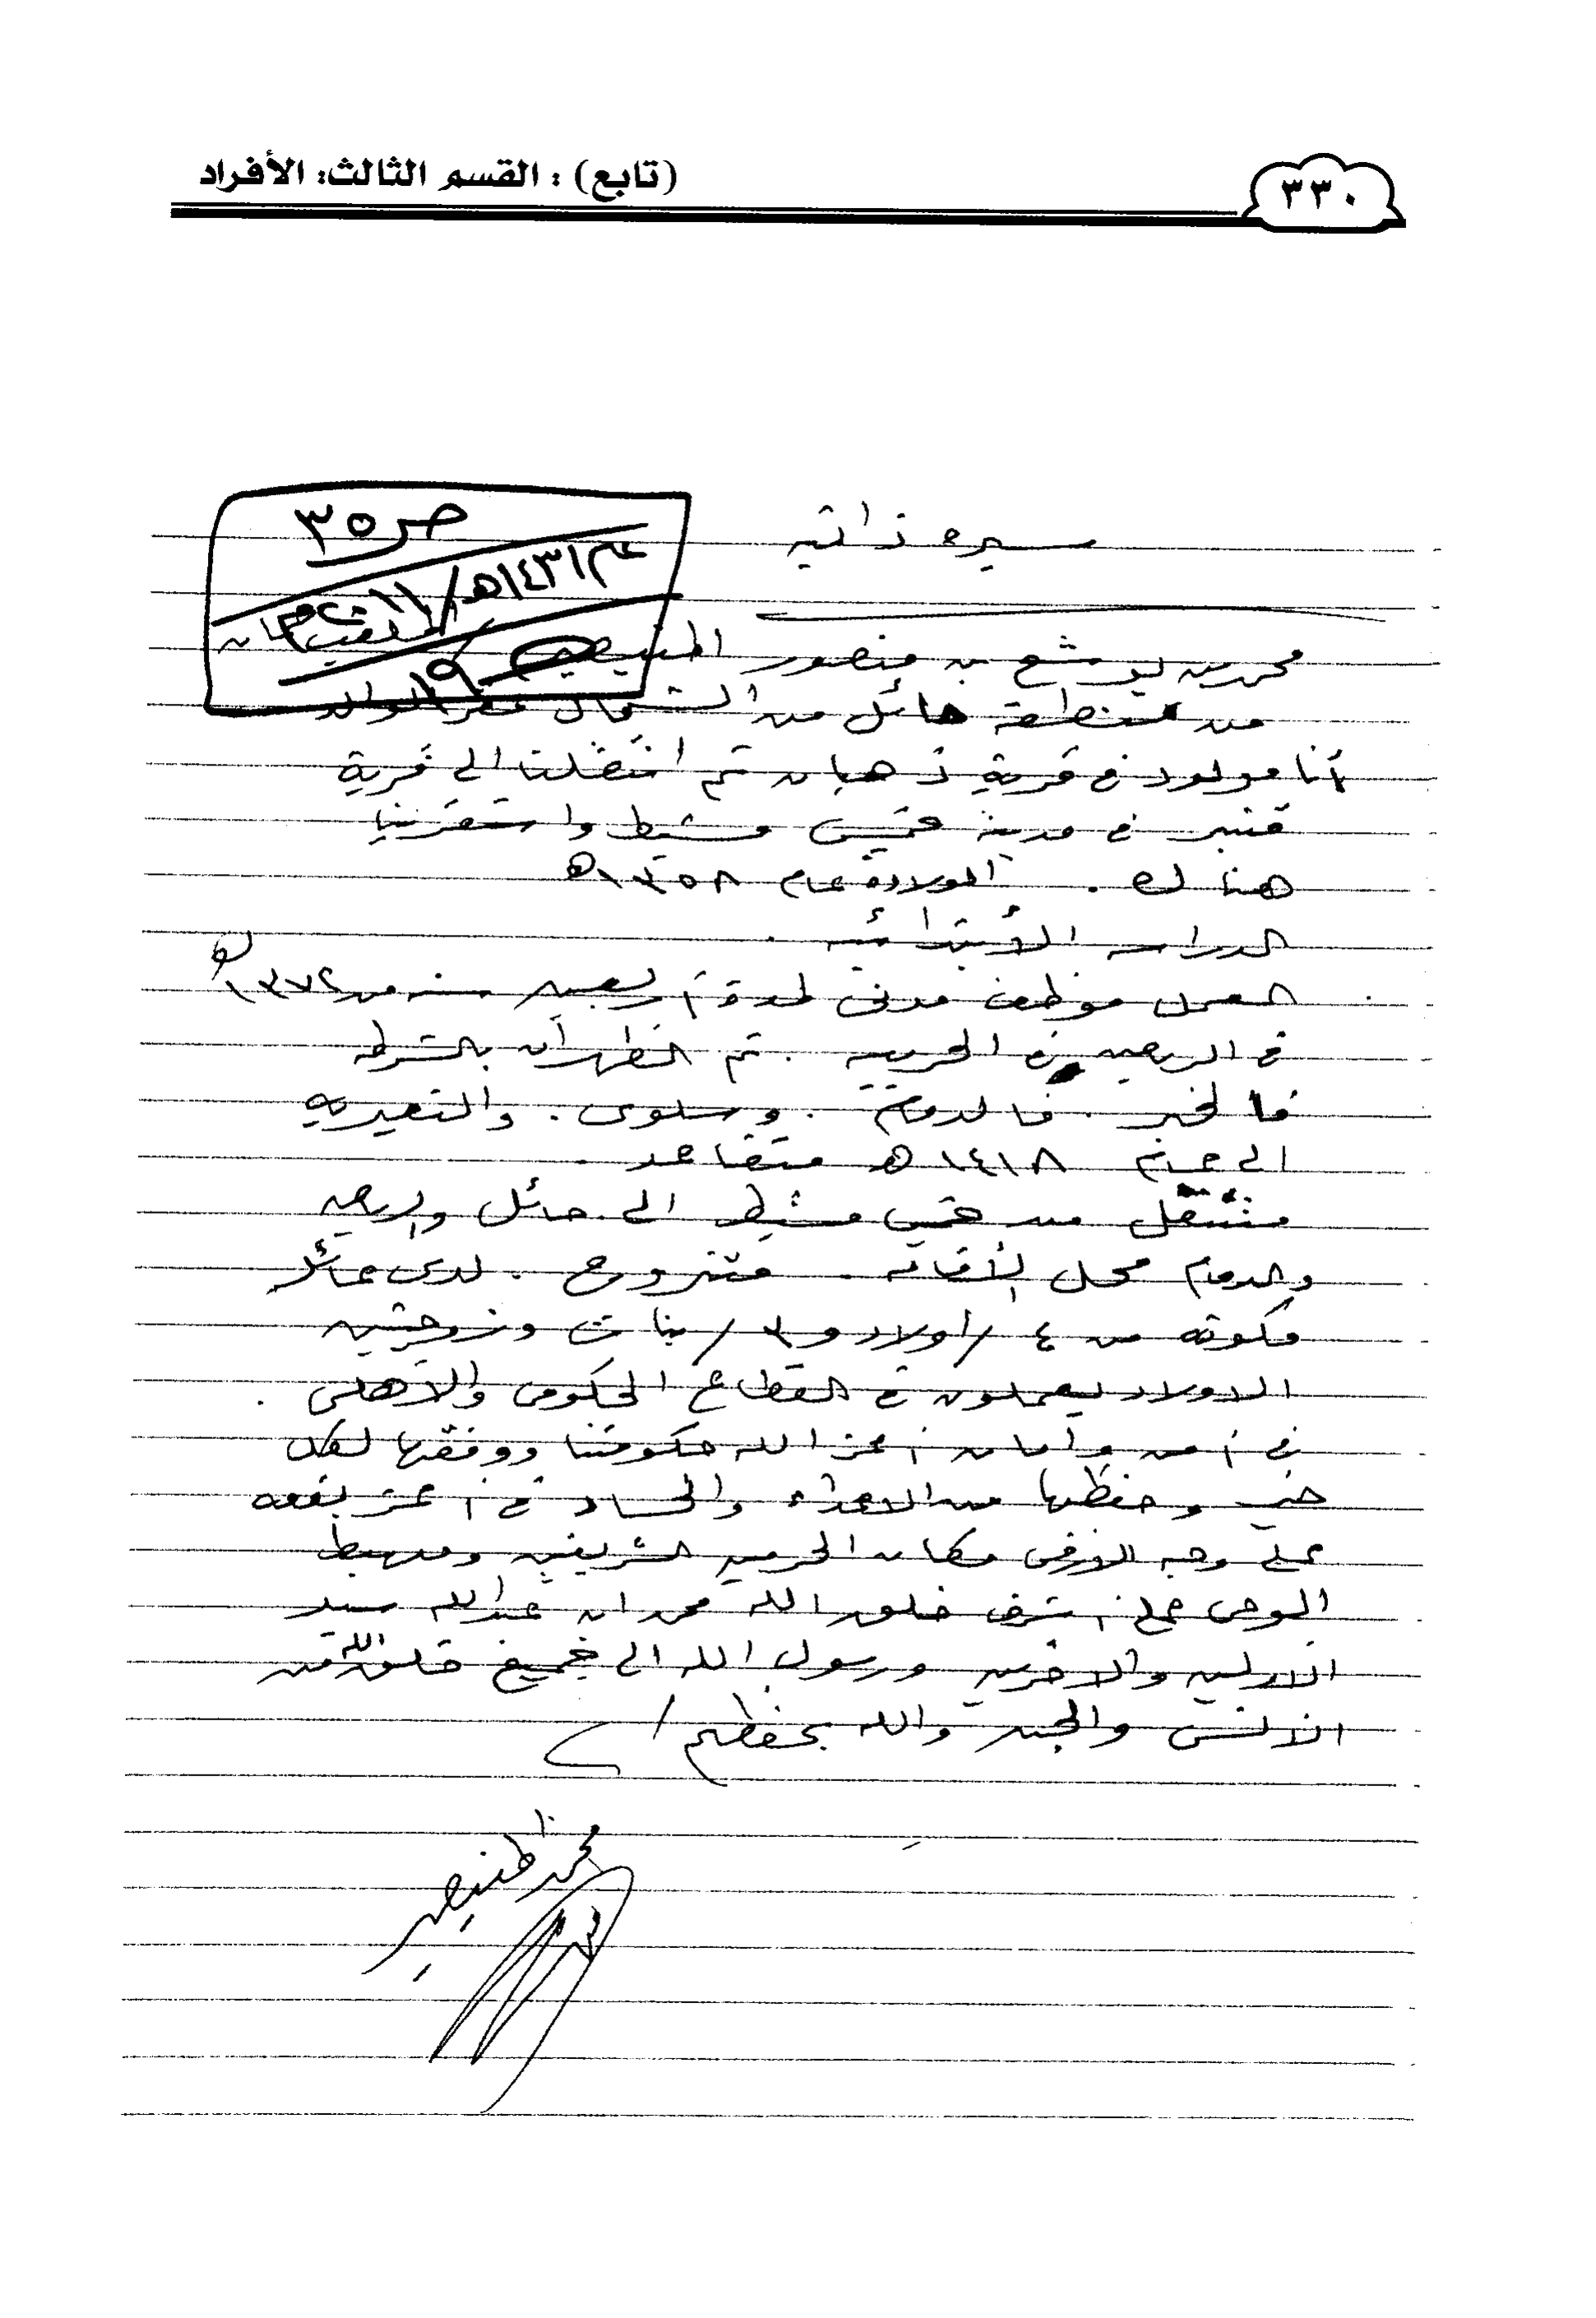 ٣٣٠
(تابع) : القسم الثالث: الأفراد
ص ٣٥
عام ١٤٣١هـ/
سيره ذاتيه
محمد بن منصور المنيصير
من منطقة حائل من الشمال الوالد
أنا مولود في قرية ذهبان ثم انتقلنا الى قرية
قنبر في مدينة خميس مشيط واستقرينا
هناك . الولادة عام ١٣٥٨هـ
الدراسه الأبتدائيه .
العمل موظف مدني لمدة أربعين سنه من ١٣٧٢هـ
في الرياض في الحربيه . ثم الظهران بالشرطه
فالخبر . فالدمام . وسلوى . والنعيريه
الى عام ١٤١٨هـ متقاعد .
متنقل من خميس مشيط الى حائل والرياض
والدمام محل الأقامه . متزوج . لدى عائله
مكونه من ٤ / اولاد و٣ / بنات وزوجتين
الاولاد يعملون في القطاع الحكومي والاهلي .
في أمن وأمان أعز الله حكومتنا ووفقها لكل
خير وحفظها من الاعداء والحساد في أعز بقعه
على وجه الارض مكان الحرمين الشريفين ومهبط
الوحي على أشرف خلق الله محمد ابن عبدالله سيد
الاولين والاخرين ورسول الله الى جميع خلق الله من
الانس والجن والله يحفظهم /
محمد المنيصير